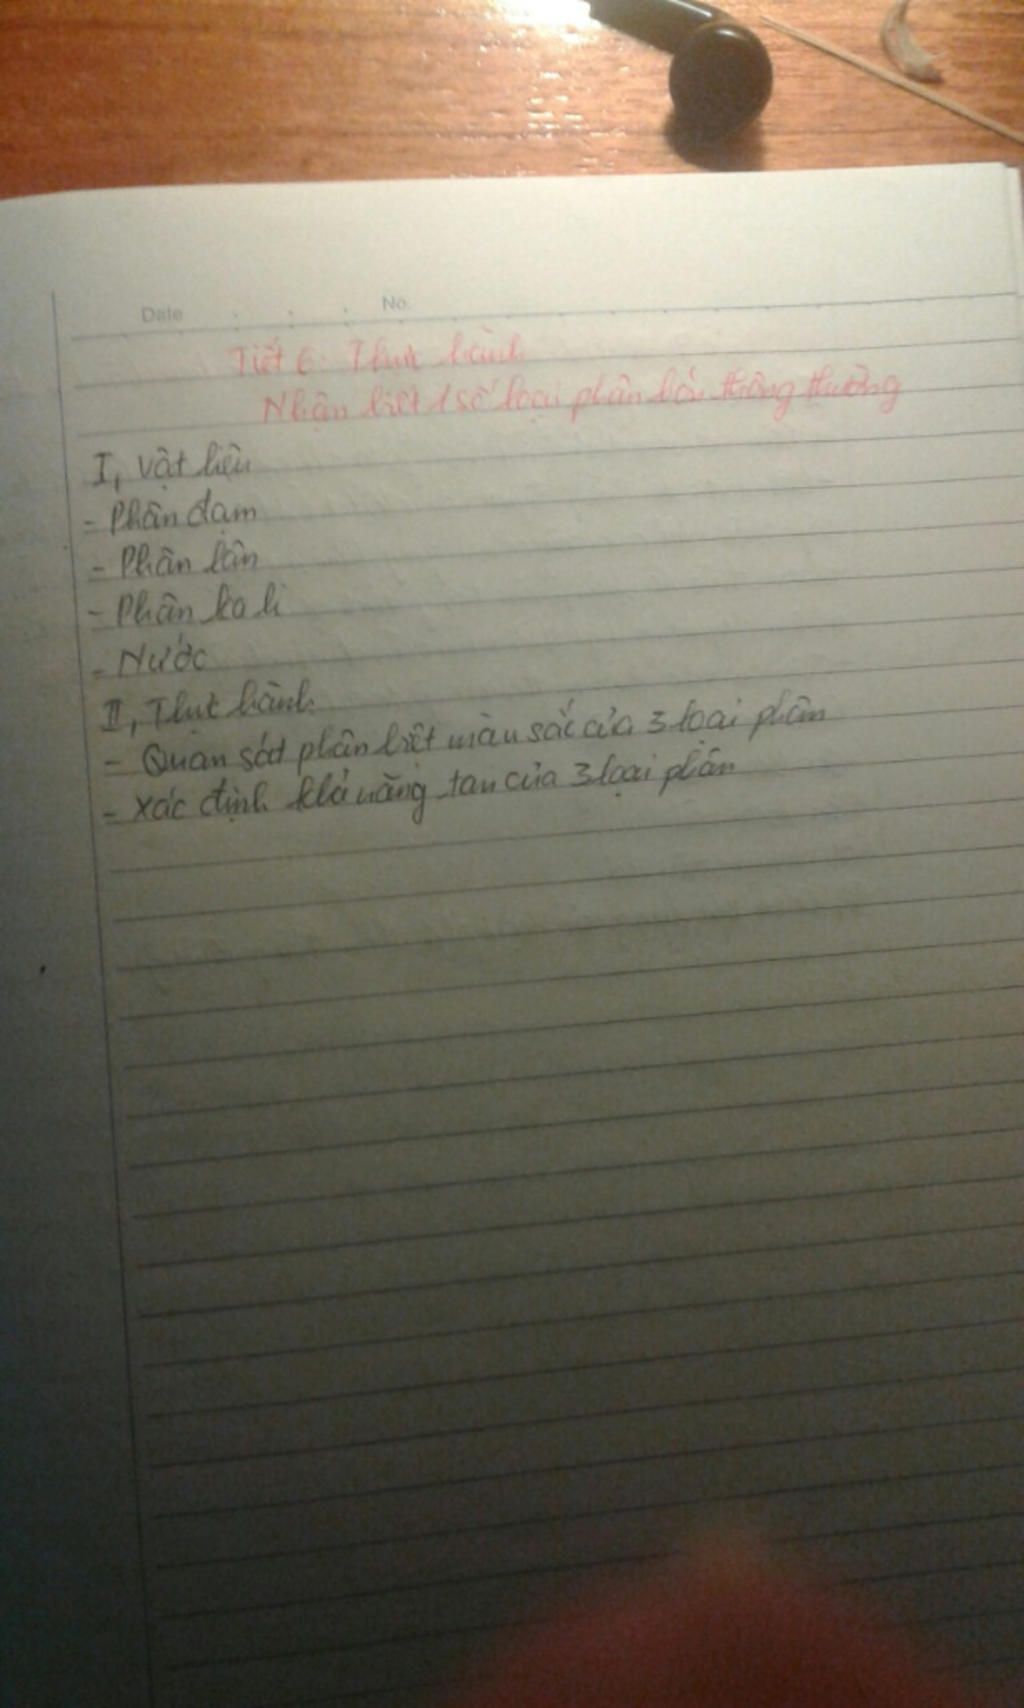 Date : : : No.
Tiết 6: Thực hành
Nhận biết 1 số loại phân bón thông thường
I, Vật liệu
- Phân đạm
- Phân lân
- Phân kali
- Nước
II, Thực hành
- Quan sát phân biệt màu sắc của 3 loại phân
- Xác định khả năng tan của 3 loại phân